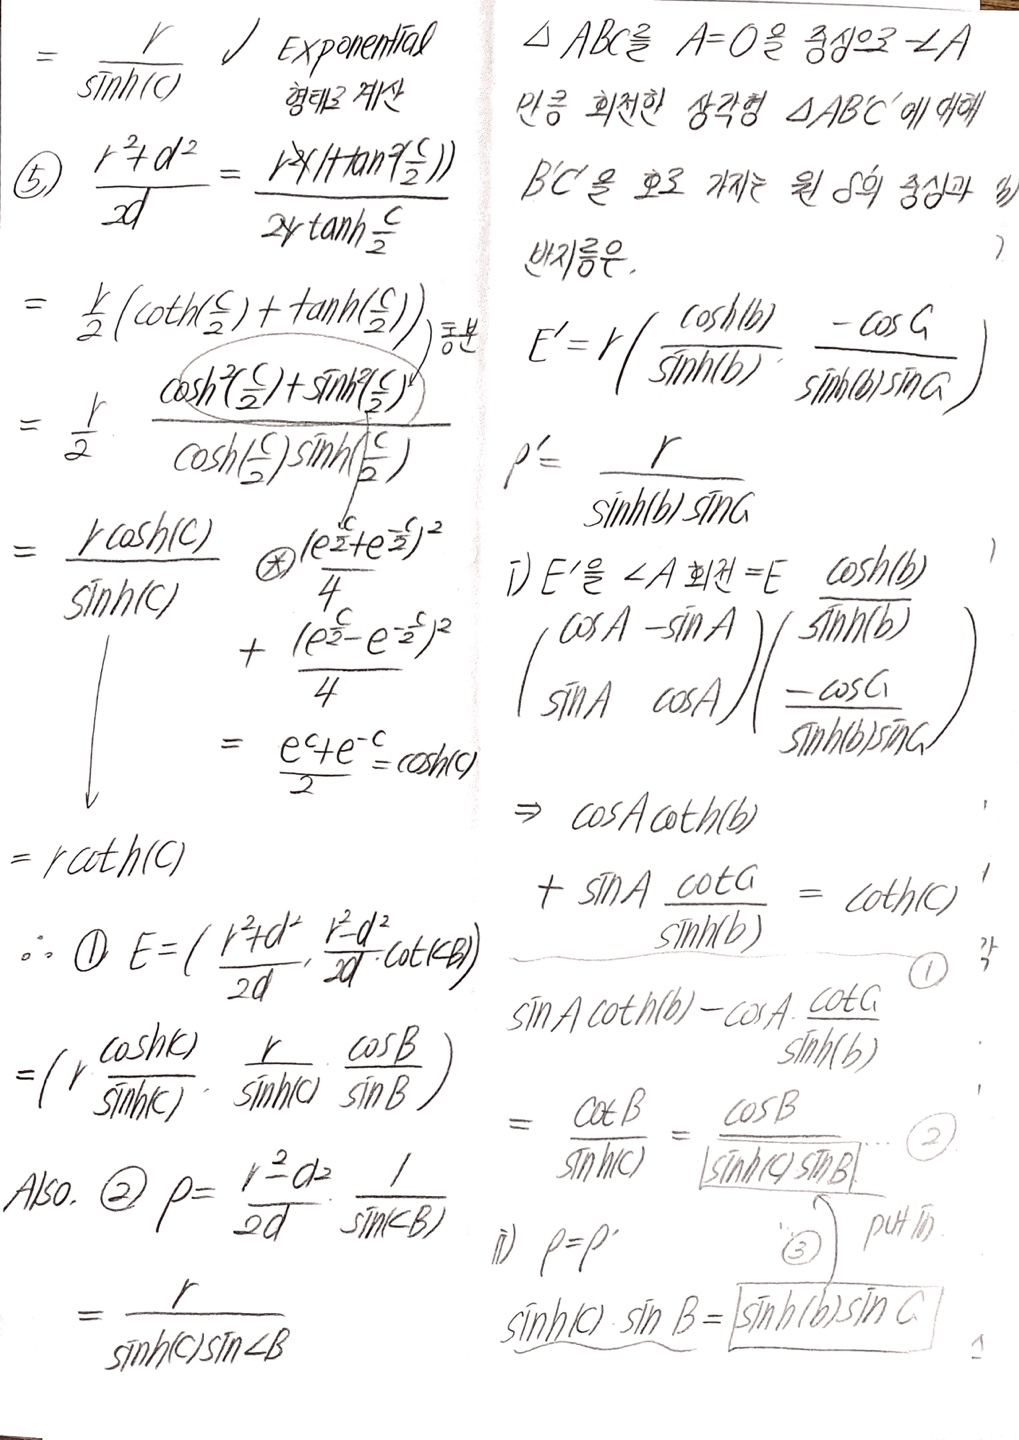 = r/sinh(c) ✓ Exponential
형태로 계산
⑤) (r²+d²)/2d = r²(1+tan²(c/2))/(2r tanh c/2)
= r/2 (coth(c/2) + tanh(c/2)) ) 통분
= r/2 · (cosh²(c/2) + sinh²(c/2))/(cosh(c/2) sinh(c/2))
= r cosh(c)/sinh(c) ⊛ (e^{c/2}+e^{-c/2})²/4
+ (e^{c/2} - e^{-c/2})²/4
= (e^c+e^{-c})/2 = cosh(c)
= r coth(c)
∴ ① E = ((r²+d²)/2d, (r²-d²)/2d · cot(∠B))
= (r cosh(c)/sinh(c), r/sinh(c) · cosB/sinB)
Also. ② ρ = (r²-d²)/2d · 1/sin(∠B)
= r/(sinh(c) sin∠B)
△ABC를 A=O을 중심으로 -∠A
만큼 회전한 삼각형 △AB'C'에 대해
B'C'을 호로 가지는 원 δ'의 중심과
반지름은.
E' = r(cosh(b)/sinh(b), -cosC/(sinh(b) sinC))
ρ' = r/(sinh(b) sinC)
i) E'을 ∠A 회전 = E
(cosA -sinA
sinA cosA) (cosh(b)/sinh(b)
-cosC/(sinh(b) sinC))
⇒ cosA coth(b)
+ sinA cotC/sinh(b) = coth(c)
①
sinA coth(b) - cosA · cotC/sinh(b)
= cotB/sinh(c) = cosB/(sinh(c) sinB) ... ②
ii) ρ=ρ' ∵ ③ put in.
sinh(c) · sin B = sinh(b) sin C
각